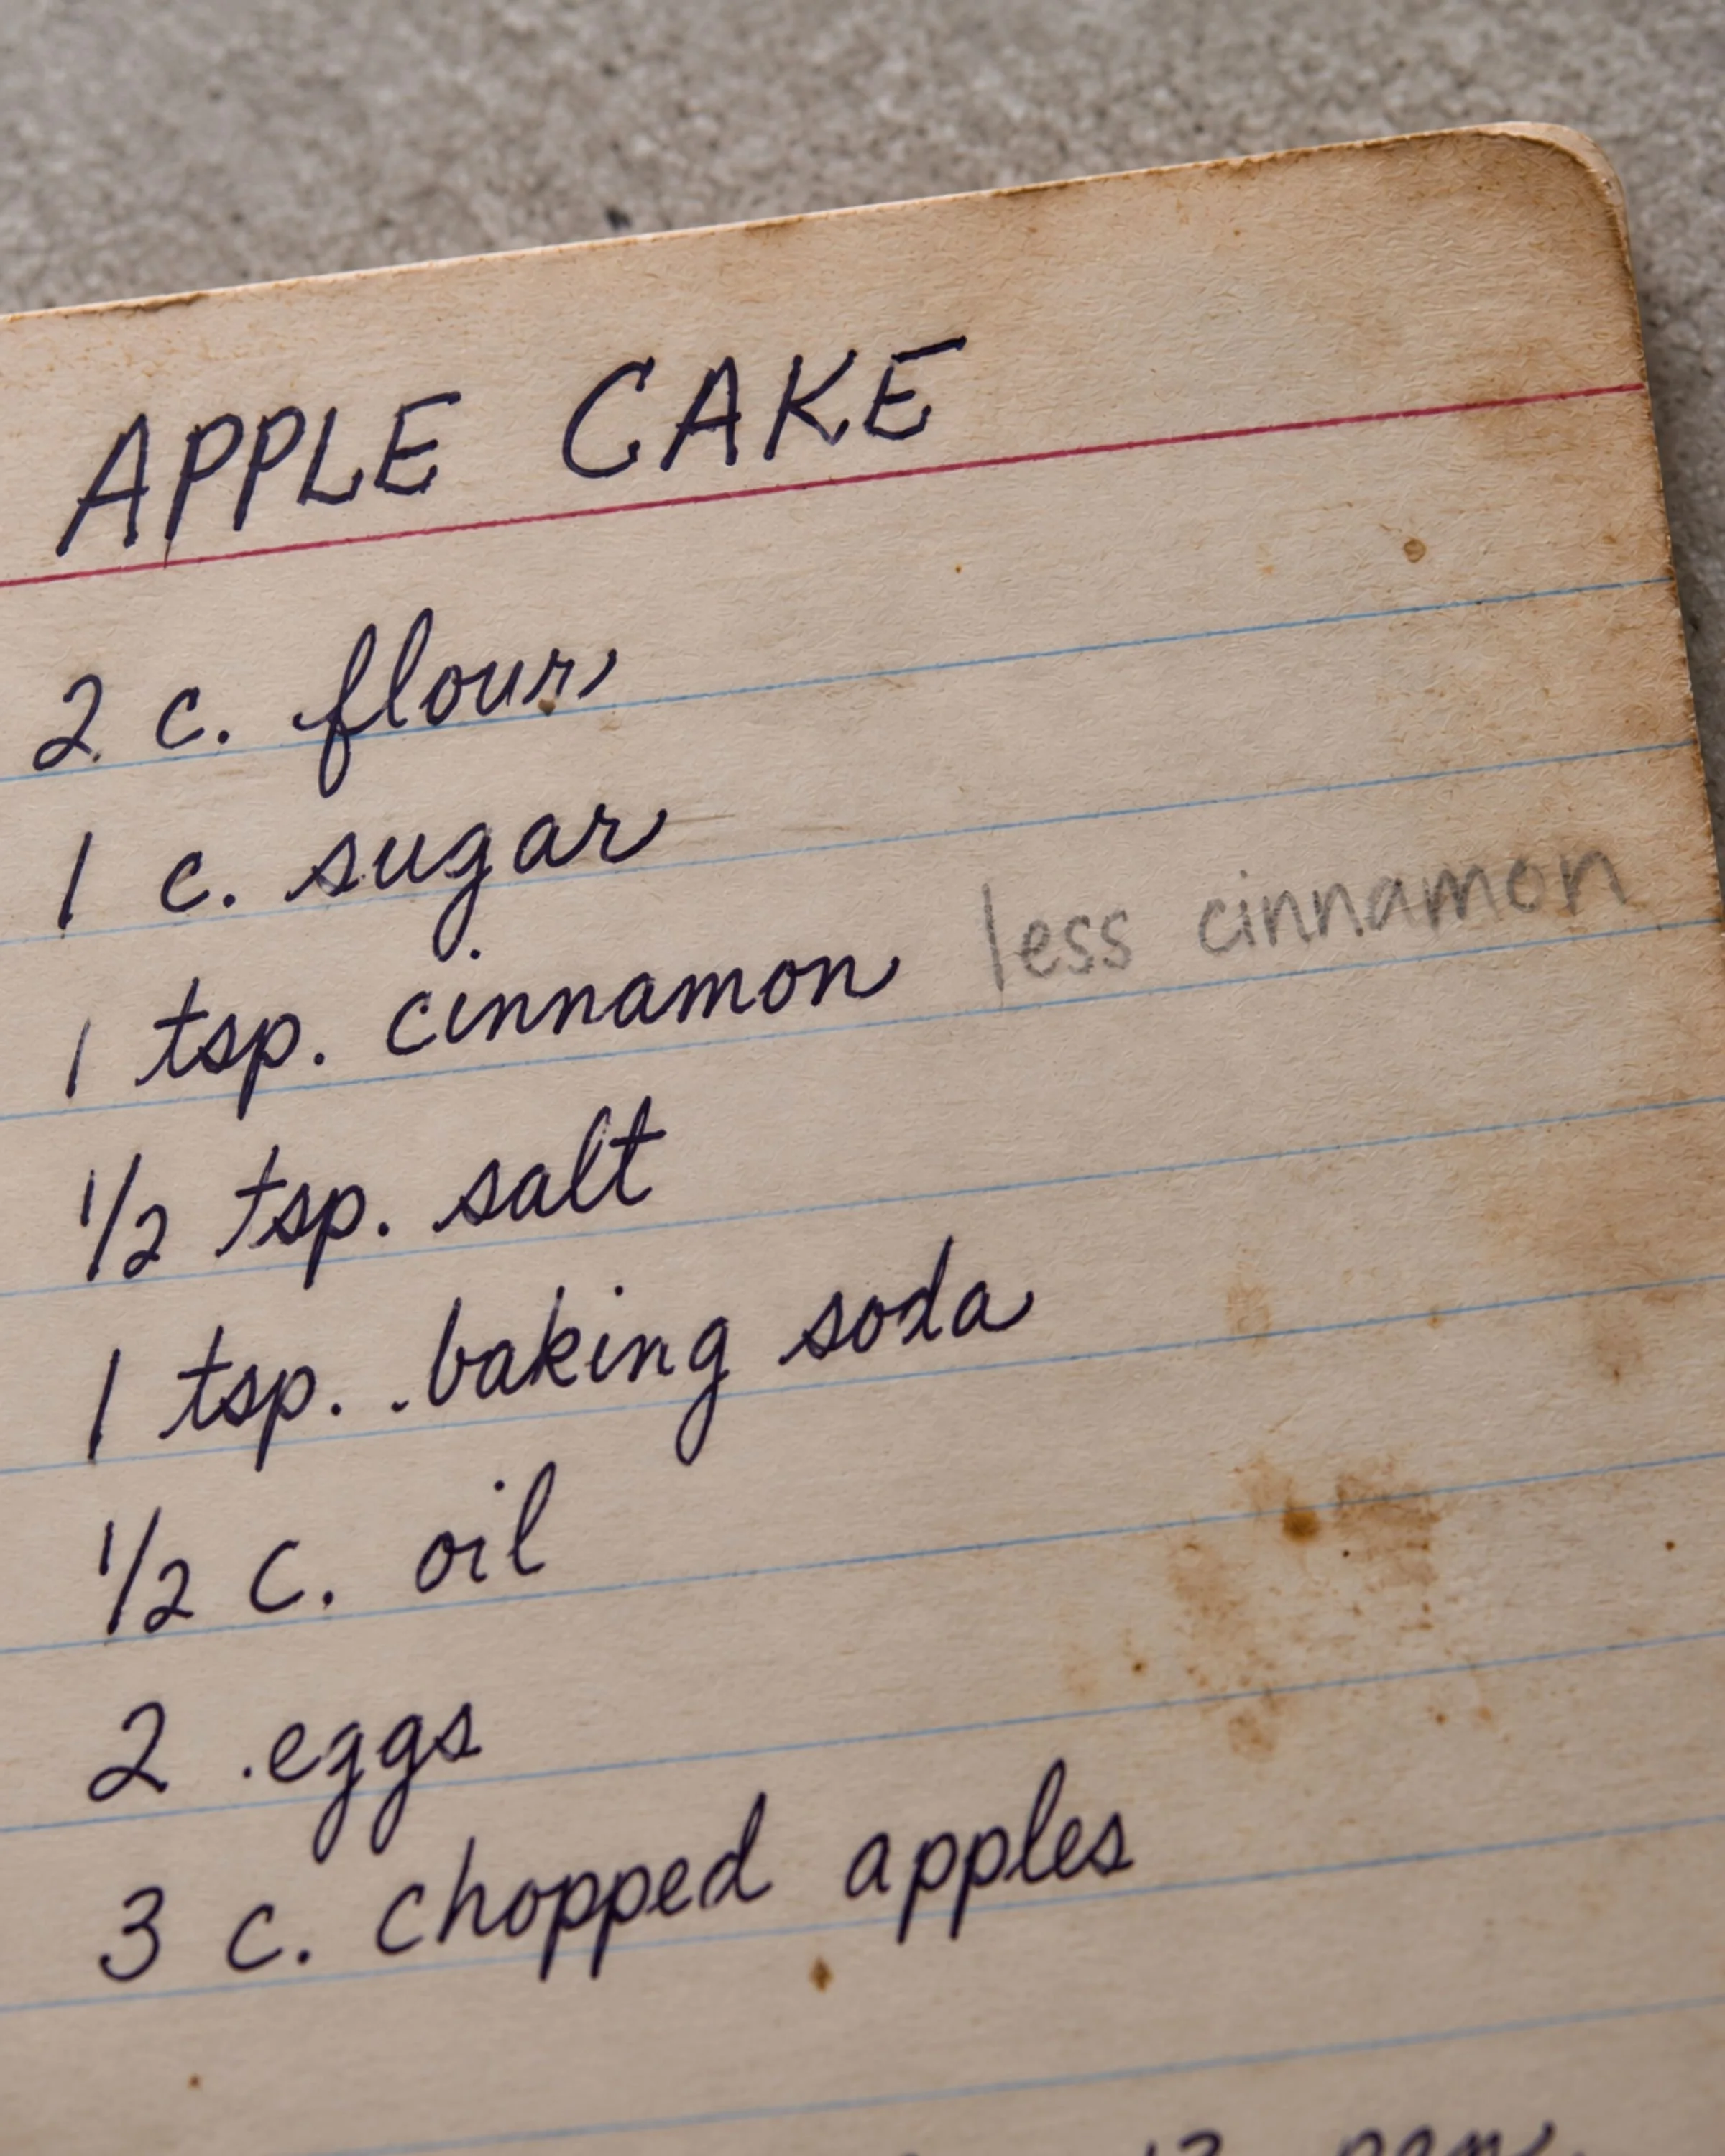 APPLE CAKE
2 c. flour
1 c. sugar
1 tsp. cinnamon less cinnamon
1/2 tsp. salt
1 tsp. baking soda
1/2 c. oil
2 eggs
3 c. chopped apples
13 pan